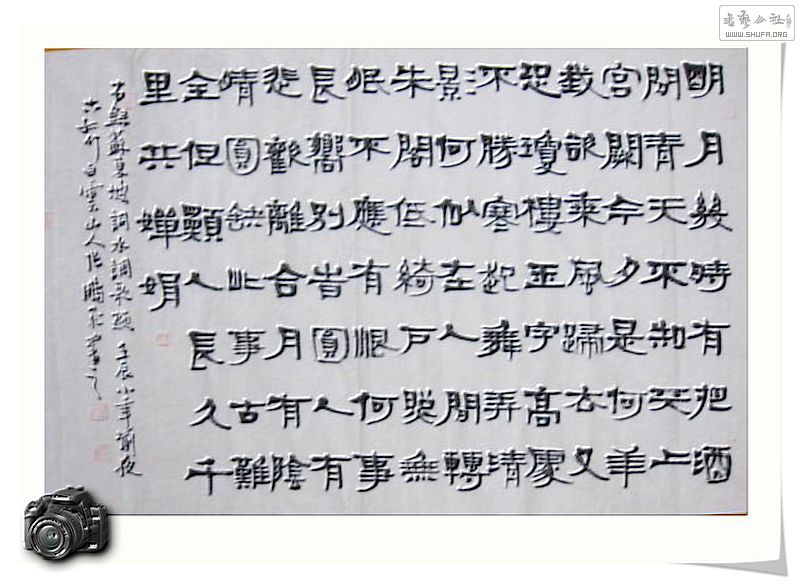 明月幾時有把酒
問青天不知天上
宮闕今夕是何年
我欲乘風歸去又
恐瓊樓玉宇高處
不勝寒起舞弄清
影何似在人間轉
朱閣低綺戶照無
眠不應有恨何事
長嚮別旹圓人有
悲歡離合月有陰
晴圓缺此事古難
全但願人長久千
里共嬋娟
右錄蘇東坡詞水調歌頭 壬辰小年前夜
白雲山人張鵬飛書之
WWW.SHUFA.ORG